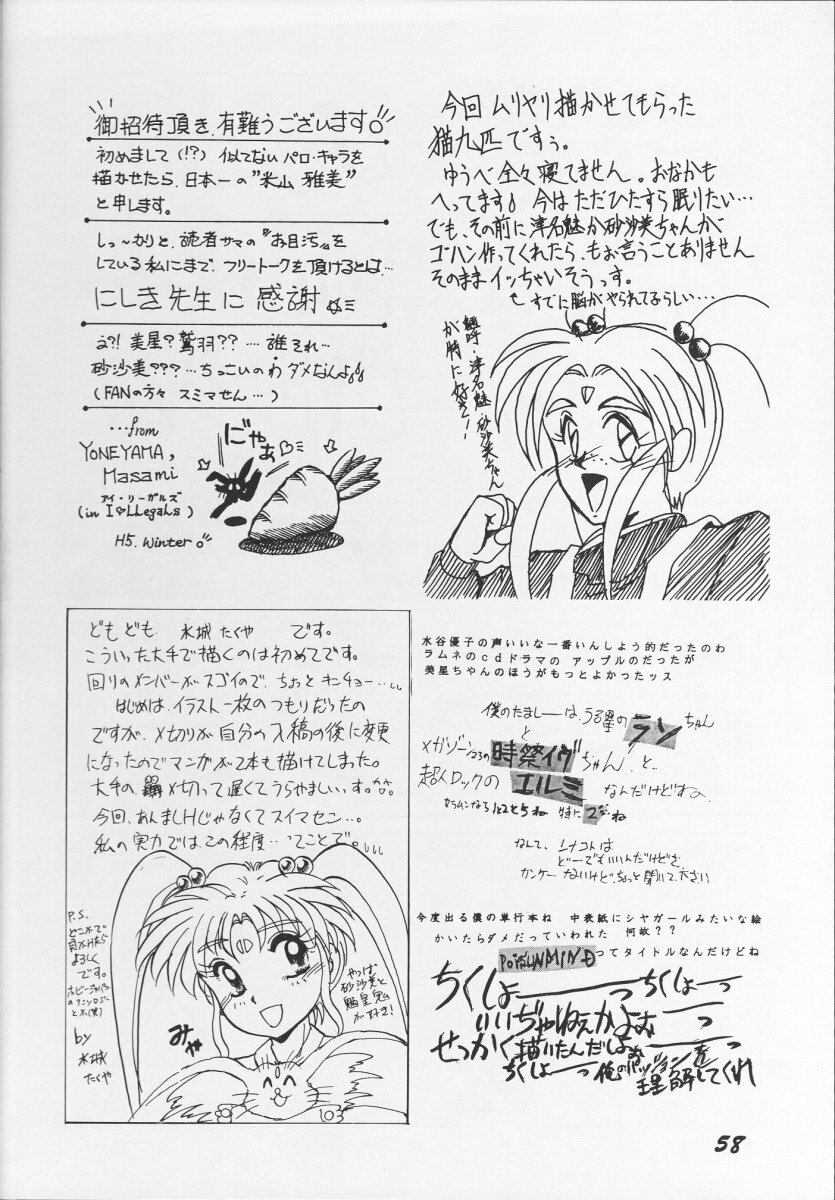 御招待頂き、有難うございます。
初めまして(!?) 似てないパロ・キャラを
描かせたら、日本一の"米山 雅美"
と申します。
しっ〜かりと、読者サマの『お目汚』を
している私にまで、フリートークを頂けるとは…
にしき先生に 感謝
え?! 美星? 鷲羽?? …… 誰それ…
砂沙美??? …ちっこいのわ ダメなんよ
(FANの方々 スミマせん…)
…from
YONEYAMA,
Masami
アイ・リーガルズ
(in I♡LLegaLs)
H5. Winter。
にゃあ
今回 ムリヤリ描かせてもらった
猫九匹ですぅ。
ゆうべ全々寝てません。おなかも
へってます 今はただひたすら眠りたい…
でも、その前に津名魅か砂沙美ちゃんが
ゴハン作ってくれたら、もお言うことありません
そのままイッちゃいそうっす。
すでに脳がやられてるらしい…
魎呼・津名魅・砂沙美ちゃん
が特に好き!
どもども 水城 たくや です。
こういった大手で描くのは初めてです。
回りのメンバーがスゴイので、ちょっとキンチョー…
はじめは、イラスト一枚のつもりだったの
ですが、〆切りが自分の入稿の後に変更
になったのでマンガが2本も描けてしまった。
大手の 〆切って遅くてうらやましいっす。
今回、あんましHじゃなくてスイマセン…。
私の実力ではこの程度…ってことで。
P.S.
よろしく
です。
by
水城
たくや
やっぱ
砂沙美と
が好き!
みゃ
水谷優子の声いいな一番いんしよう的だったのわ
ラムネのcdドラマの アップルのだったが
美星ちゃんのほうがもっとよかったッス
僕のたましーは、うる星の ランちゃん
と
メガゾーン23の 時祭イヴちゃん と
超人ロックの エルミ なんだけどすよ、
なんて、 コトは
どーでもいいんだけどさ
カンケーないけど、ちょっと聞いて下さい
今度出る僕の単行本ね 中表紙にシヤガールみたいな絵
かいたらダメだっていわれた 何故??
POISUNMINDってタイトルなんだけどね
ちくしょーーっちくしょーっ
いいぢゃねえかよおーっ
せっかく描いたんだしょぉ
ちくしょーっ 俺のパッションを
理解してくれ
58